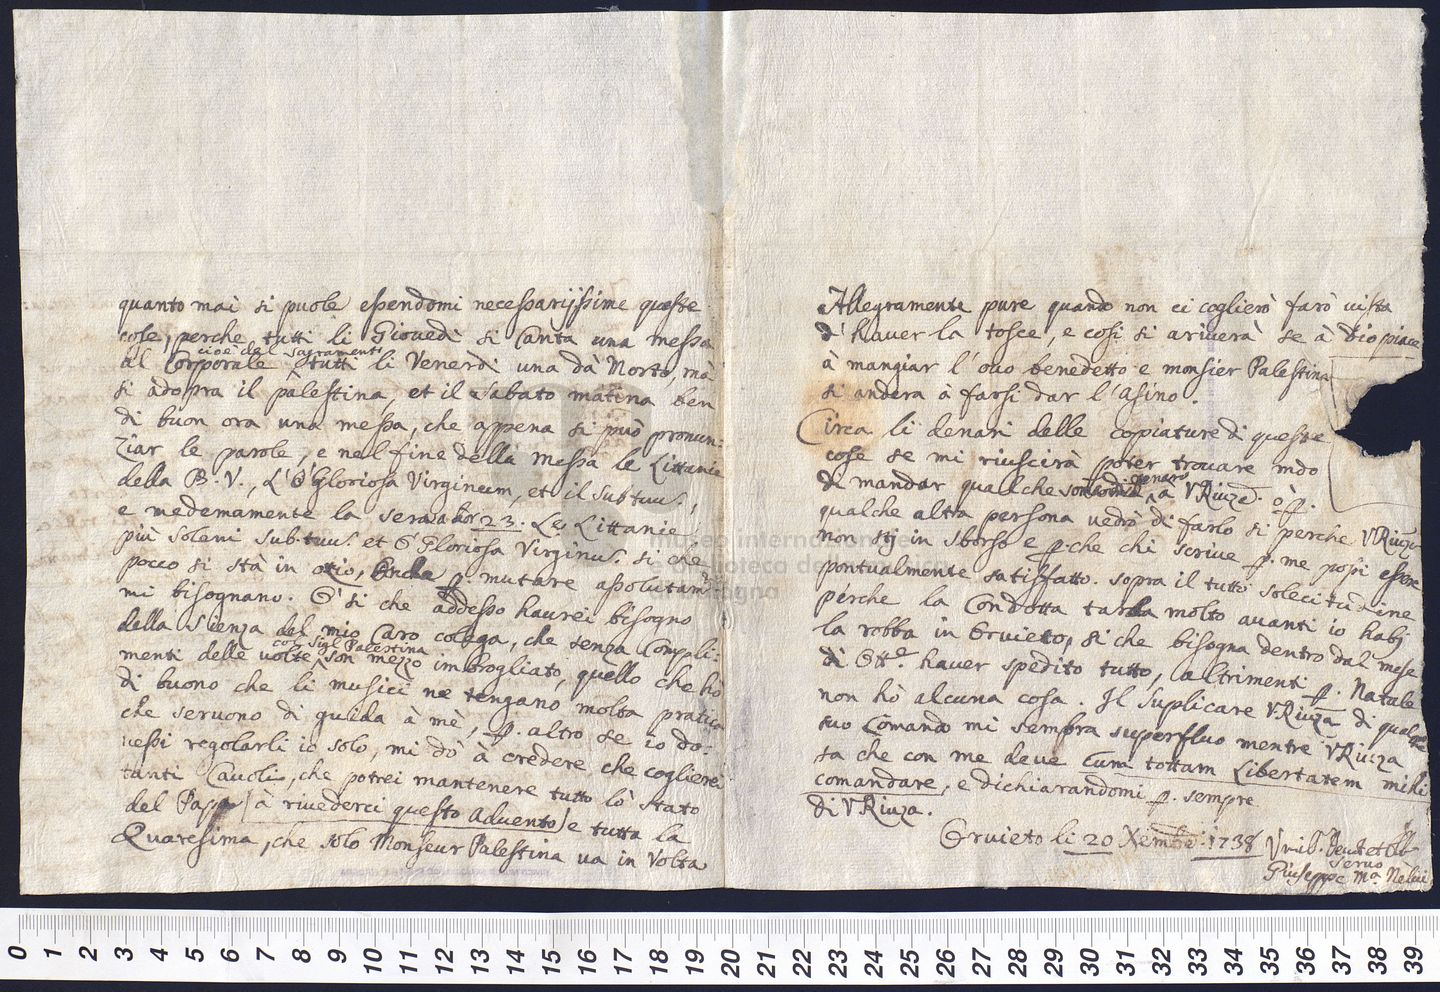 quanto mai si puole essendomi necessarijssime queste
cose, perche tutti li Giovedi si Canta una messa
al Corporale cioè del Sagramento tutti li Venerdi una dà Morto, mà
si adopra il palestina, et il Sabato matina ben
di buon ora una messa, che appena si può pronun:
ziar le parole, e nel fine della messa le Littanie
della B. V., L'O Gloriosa Virgineum, et il Sub tuu.,
e medemamente la sera a hor 23. Le Littanie
più soleni sub tuu. et O Gloriosa Virginu. si che
poco si stà in otio, Onde p. mutare assolutam.
mi bisognano. O' si che addesso haurei bisogno
della scienza del mio Caro colega, che senza Compli:
menti delle volte col Sig.l Palestina son mezzo imbrogliato, quello che hò
di buono che li musici ne tengano molta pratica
che servono di guida à mè, p. altro se io do:
vessi regolarli io solo, mi dò à credere che coglierei
tanti Cavoli, che potrei mantenere tutto lò stato
del Papa (à rivederci questo Advento) e tutta la
Quaresima, che solo Monseur Palestina va in Volta
Allegramente pure quando non ci coglierò farò vista
d' haver la tosce, e cosi si ariverà se à Dio piace
à mangiar l' ovo benedetto e monsier Palestina
si andera à farsi dar l' Asino.
Circa li denari delle copiature di queste
cose se mi riuscirà poter trovare mdo
di mandar qualche denaro à V Riuza. ò p.
qualche altra persona vedrò di farlo si perche V Riuza
non sij in sborso e p. che chi scrive p. me possi essere
pontualmente satisfatto. sopra il tutto solecitudine
perche la Condotta tarda molto avanti io habj
la robba in Orvieto, si che bisogna dentro dal mese
di Ott.e haver spedito tutto, altrimenti p. Natale
non hò alcuna cosa. Il suplicare V Riuza di qualque
suo Comando mi sembra superfluo mentre V Riuza
sa che con me deve cum tottam Libertatem mihi
comandare, e dichiarandomi p. sempre
Di V Riuza.
Orvieto li 20 Xembre 1738
servo
Giuseppe M.a Nelvi
museo internazionale
e biblioteca della